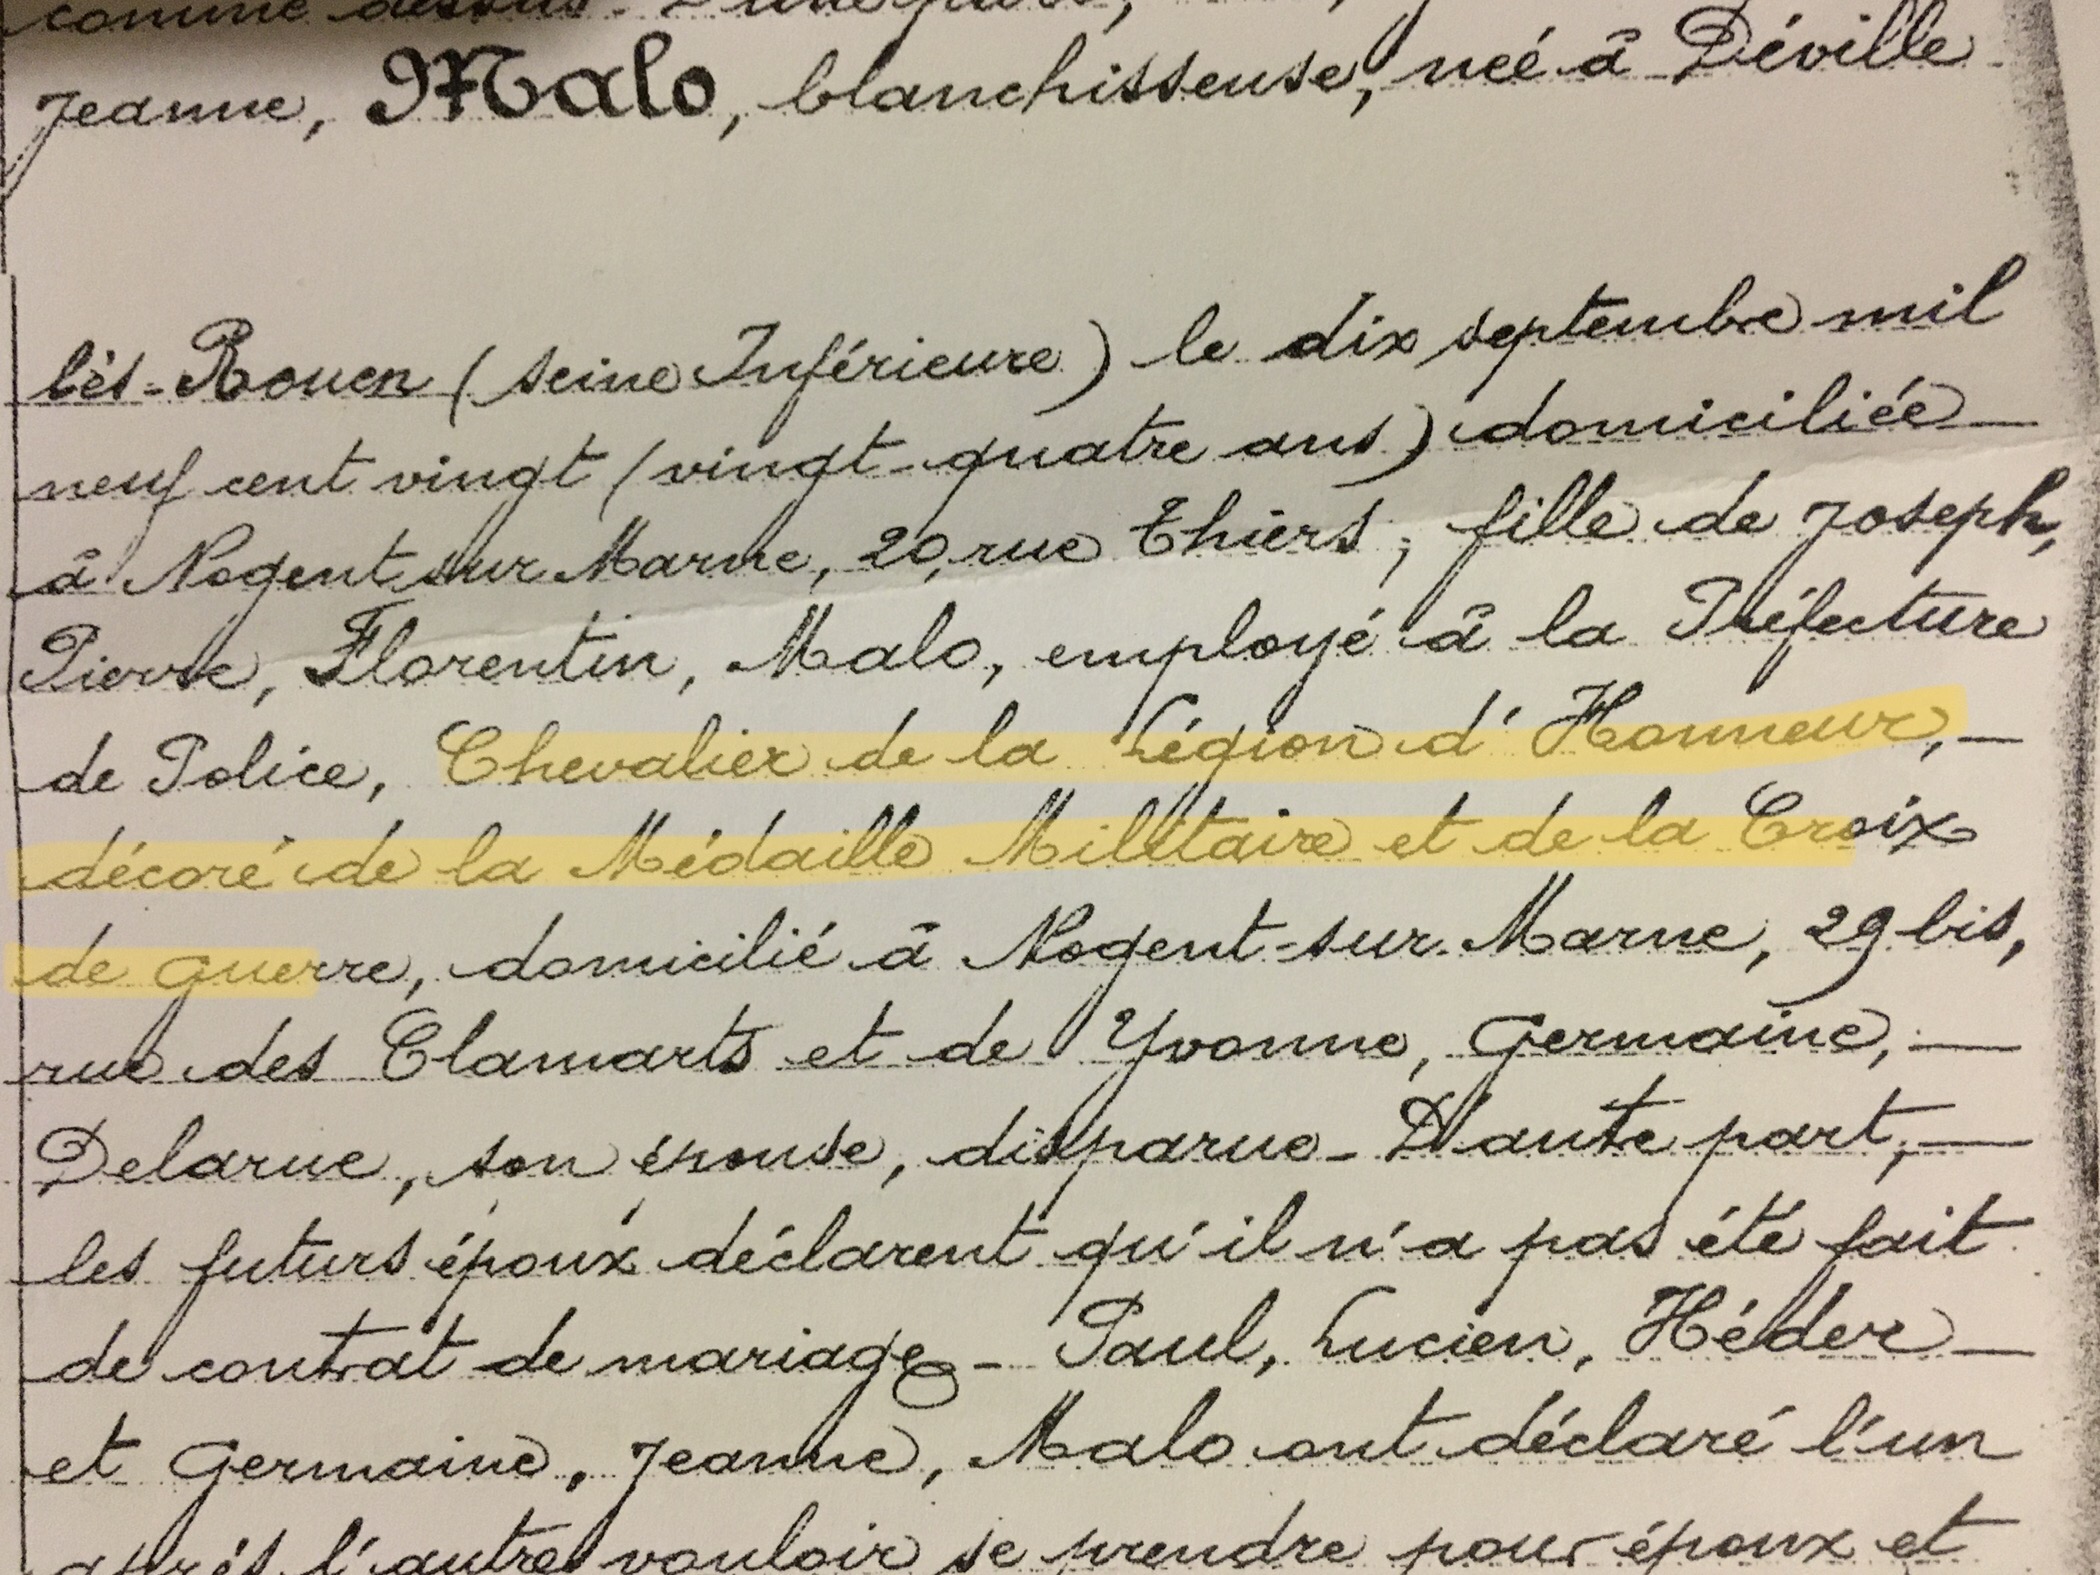 comme dessus - D'une part,
Jeanne, Malo, blanchisseuse, née à Déville
lès-Rouen (Seine Inférieure) le dix septembre mil
neuf cent vingt (vingt-quatre ans) domiciliée
à Nogent sur Marne, 20, rue Thiers, fille de Joseph,
Pierre, Florentin, Malo, employé à la Préfecture
de Police, Chevalier de la Légion d'Honneur,
décoré de la Médaille Militaire et de la Croix
de guerre, domicilié à Nogent-sur-Marne, 29 bis,
rue des Clamarts et de Yvonne, Germaine,
Delarue, son épouse, disparue - D'autre part,
les futurs époux déclarent qu'il n'a pas été fait
de contrat de mariage - Paul, Lucien, Héder
et Germaine, Jeanne, Malo ont déclaré l'un
après l'autre vouloir se prendre pour époux et